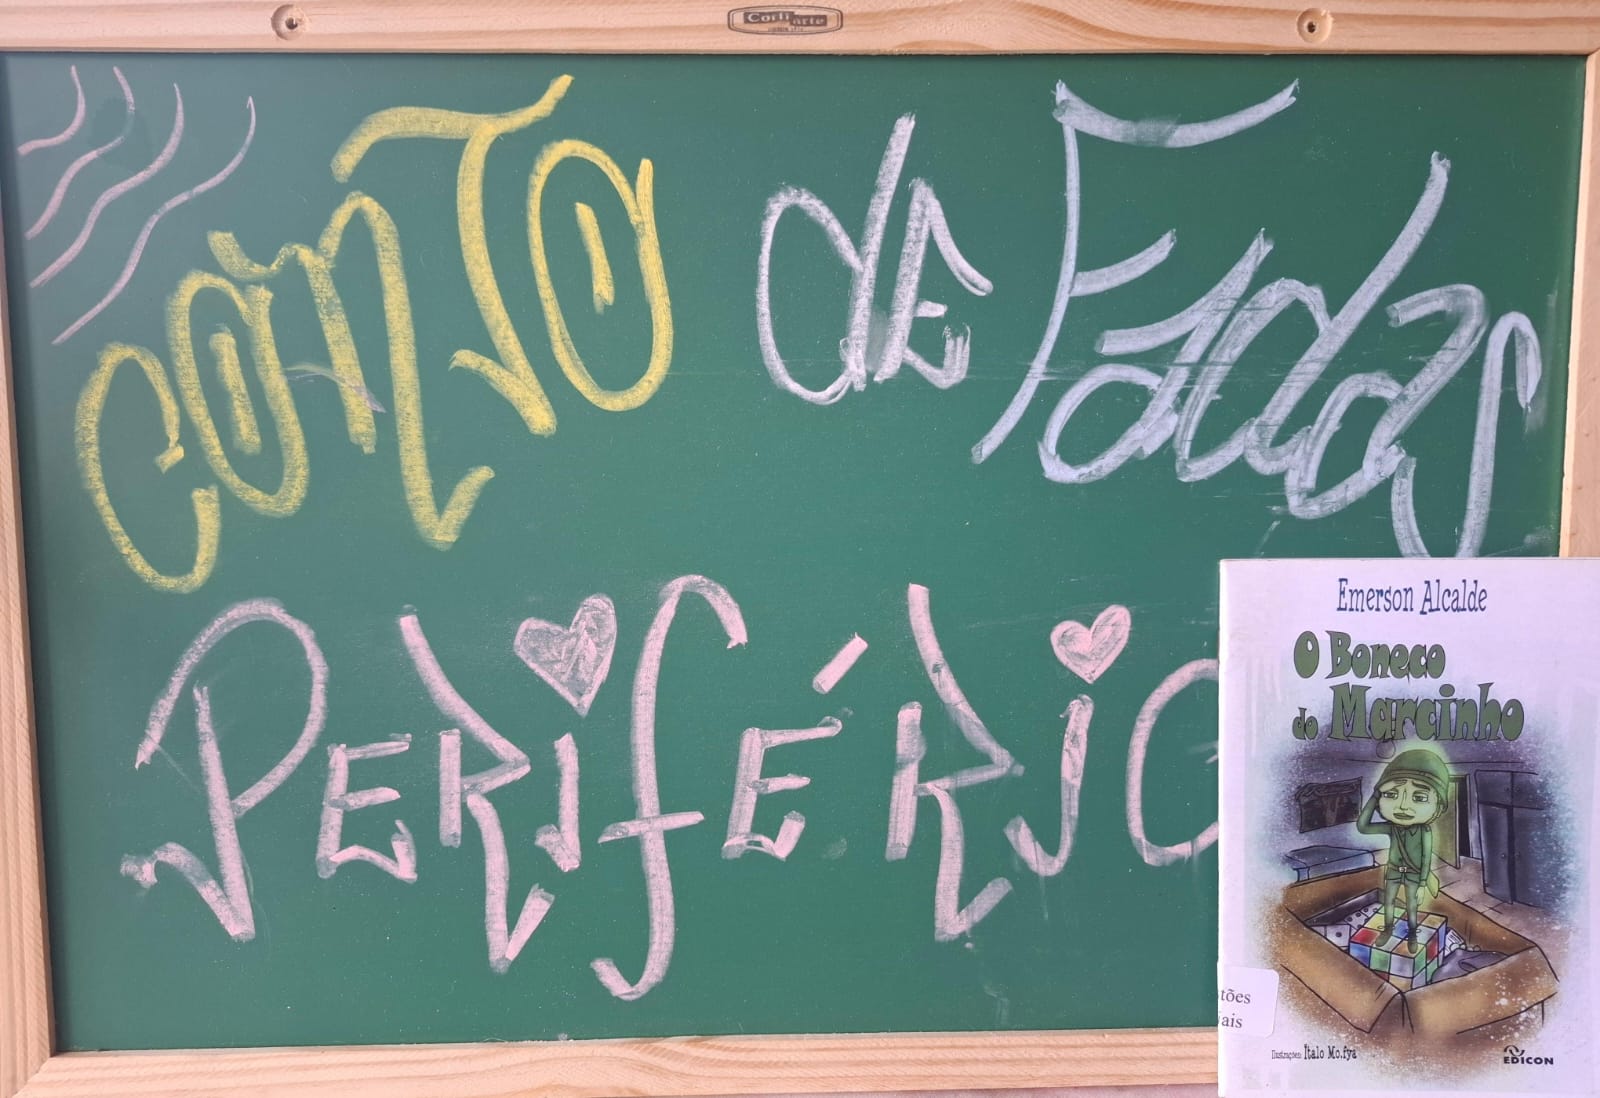 Corti arte
CONTO de Fadas
PERIFÉRIC
Emerson Alcalde
O Boneco
do Marcinho
tões
iais
Ilustrações: Ítalo Mo.fya
EDICON